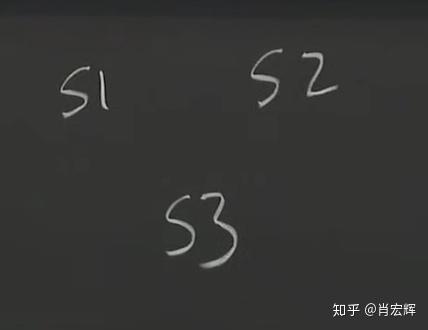 S1 S2
S3
知乎 @肖宏辉